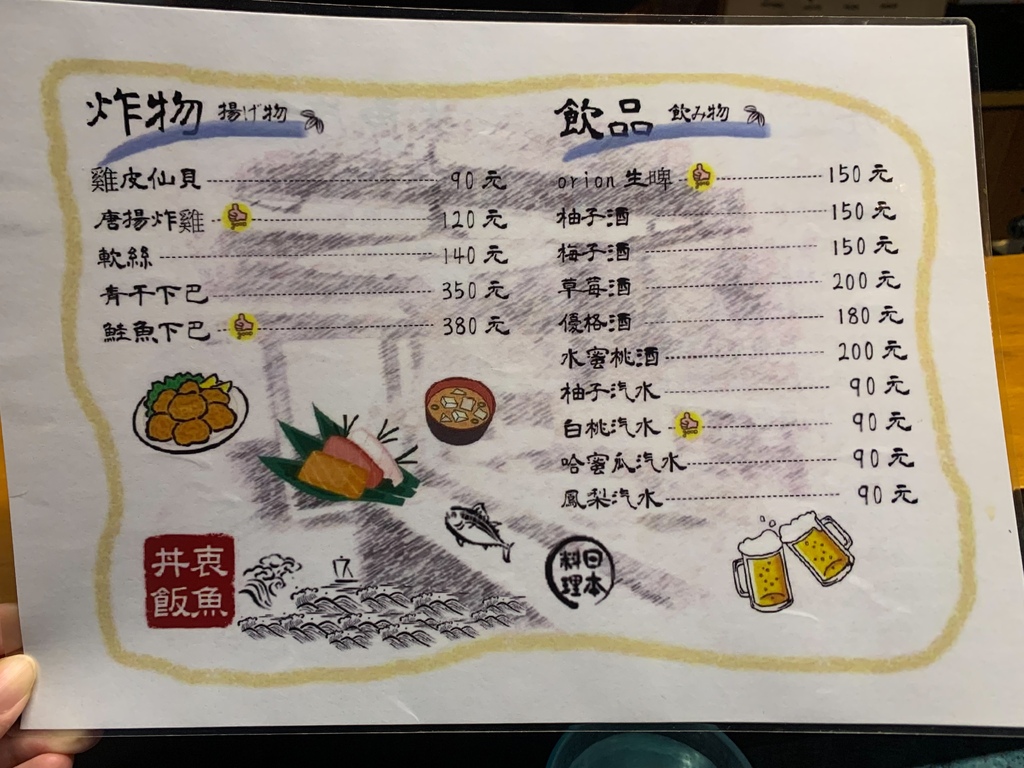 炸物 揚げ物
雞皮仙貝 90元
唐揚炸雞 120元
軟絲 140元
青干下巴 350元
鮭魚下巴 380元
飲品 飲み物
orion生啤 150元
柚子酒 150元
梅子酒 150元
草莓酒 200元
優格酒 180元
水蜜桃酒 200元
柚子汽水 90元
白桃汽水 90元
哈蜜瓜汽水 90元
鳳梨汽水 90元
衷魚
丼飯
日本
料理